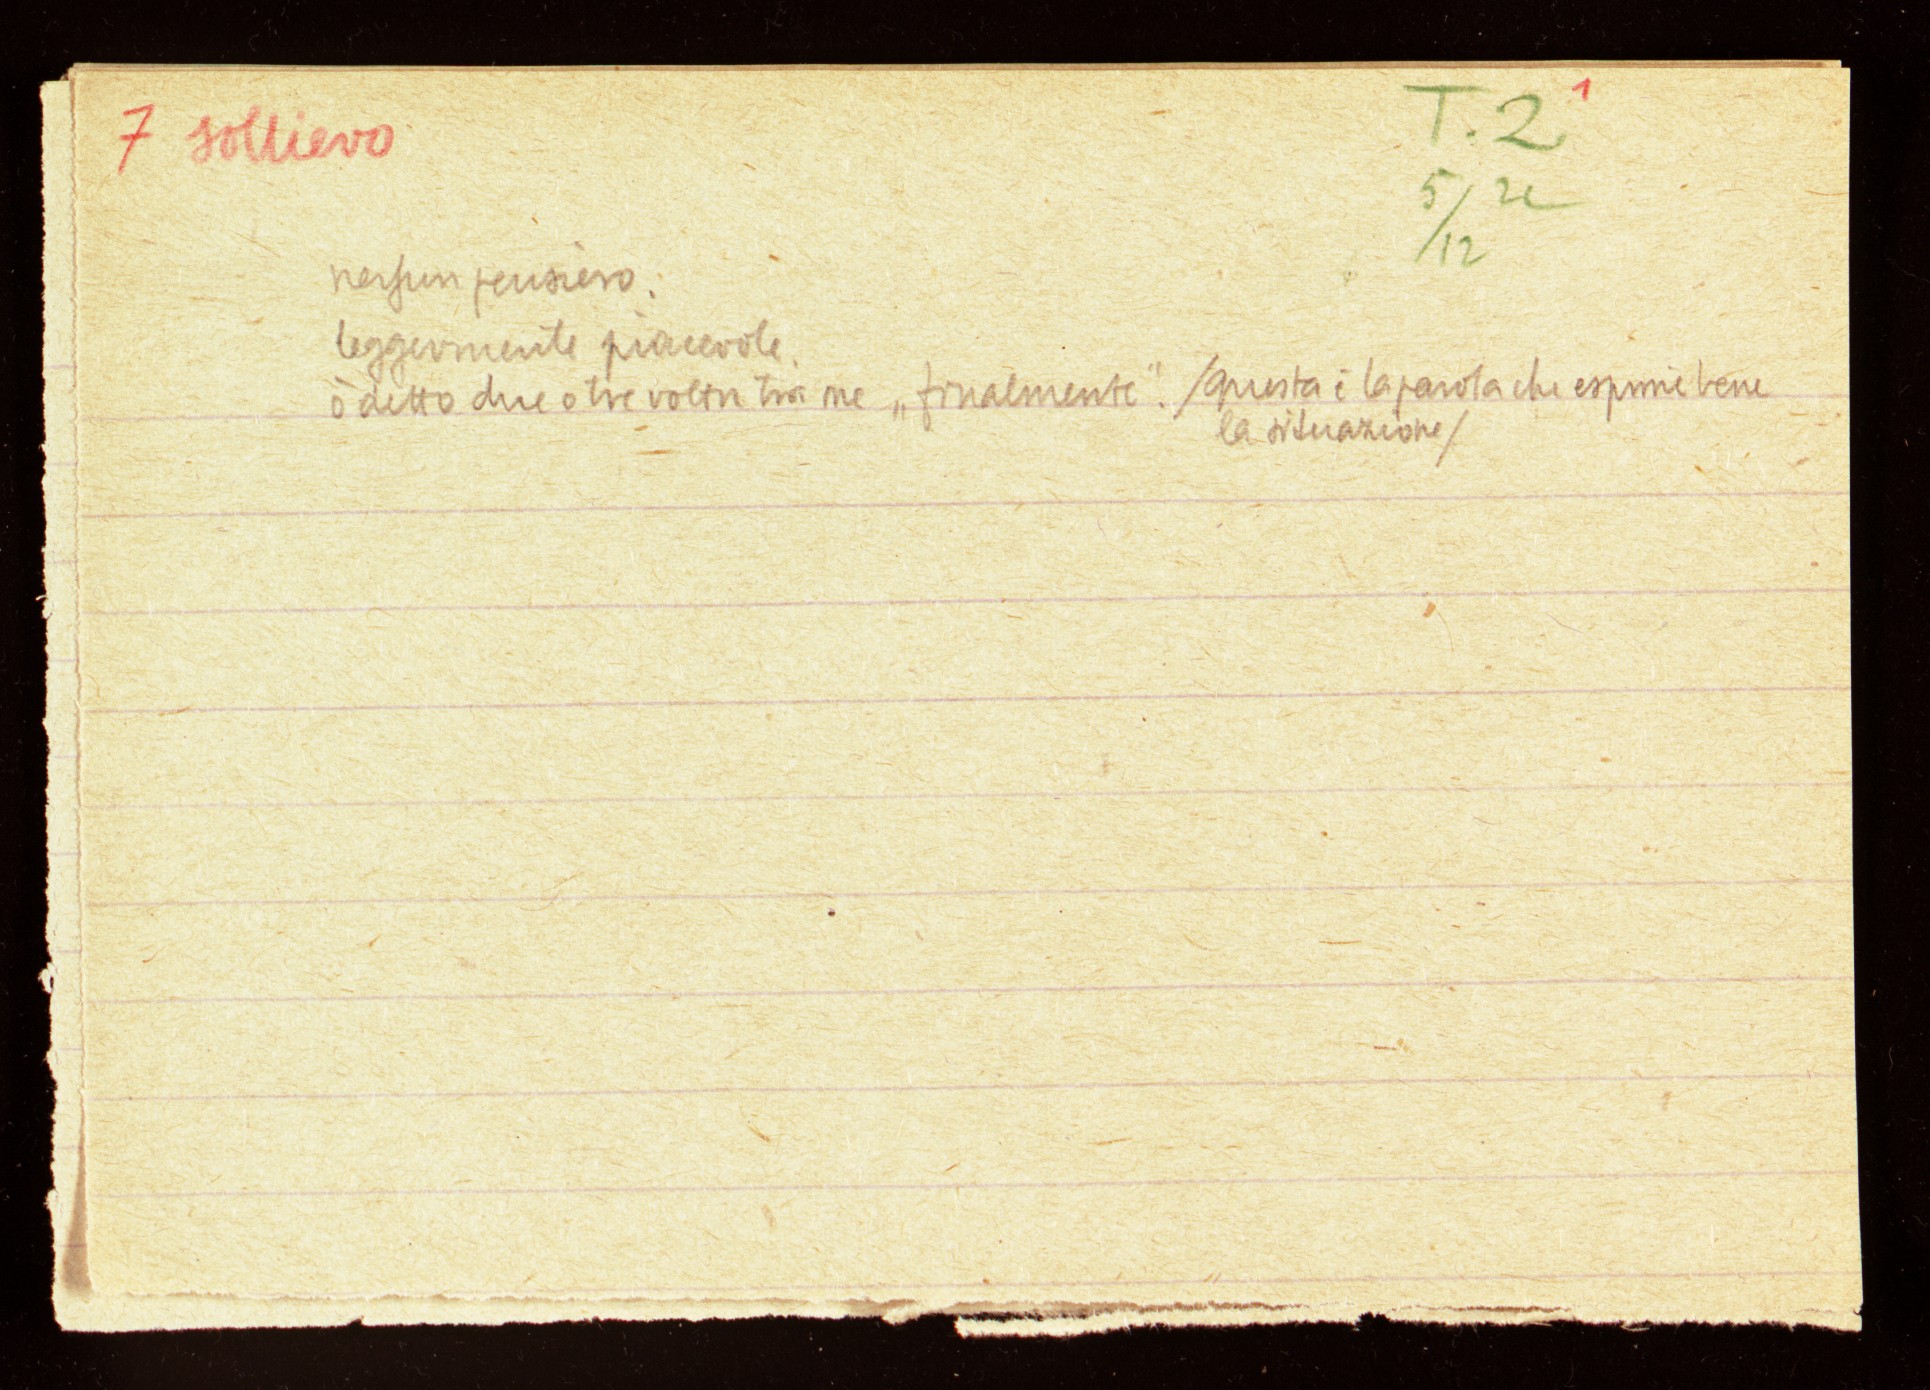 7 sollievo
T. 2 1
5/12 21
nessun pensiero.
leggermente piacevole.
ò detto due o tre volte tra me „finalmente". /questa è la parola che esprime bene
la situazione/